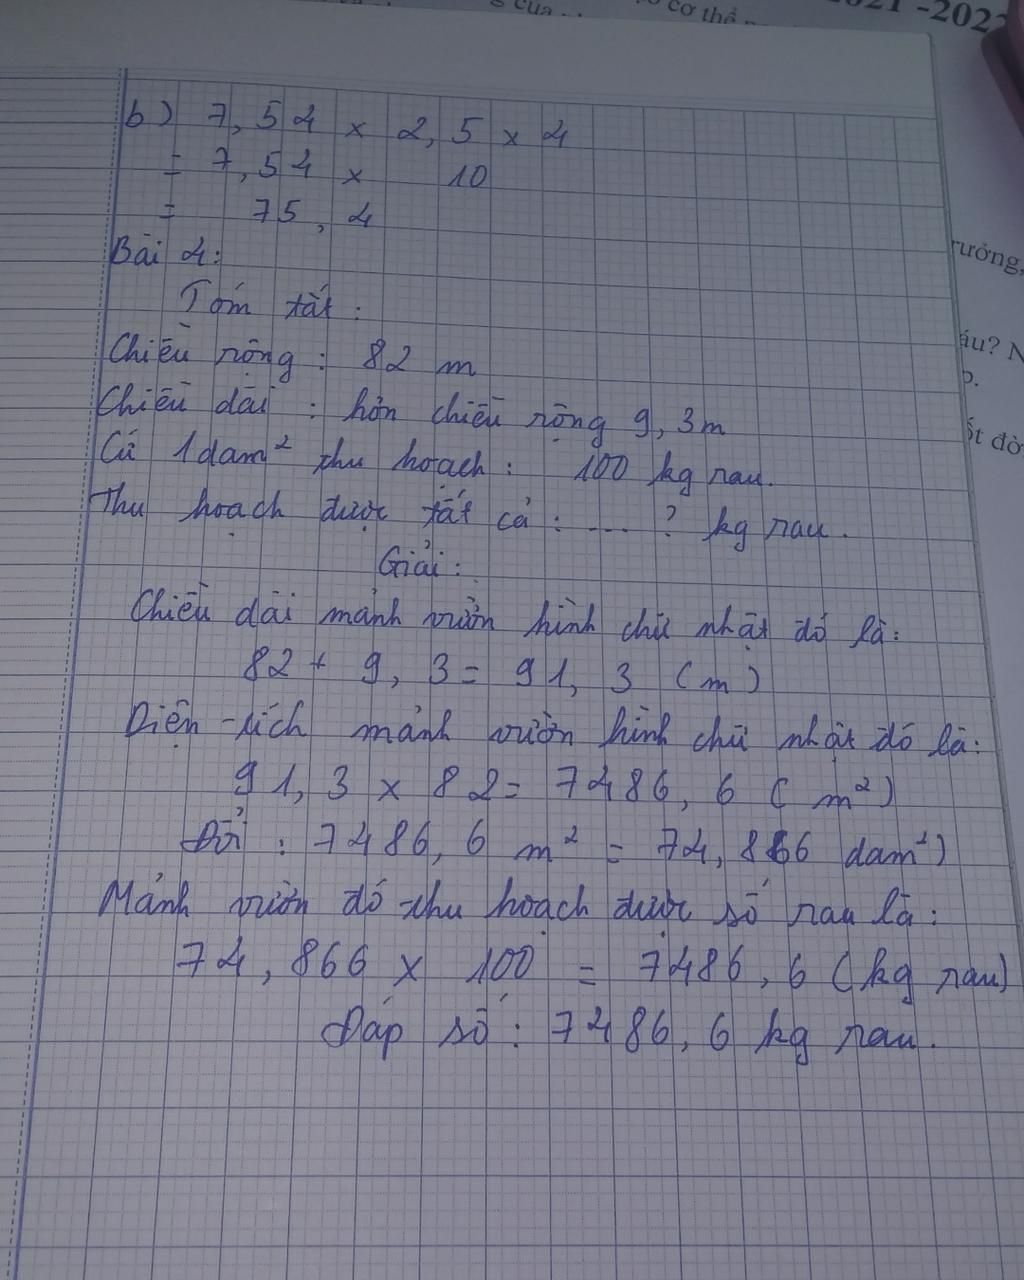 của
cơ thể
2021 -2022
b) 7,54 x 2,5 x 4
= 7,54 x 10
= 75,4
Bài 4:
Tóm tắt:
Chiều rộng: 82 m
Chiều dài: hơn chiều rộng 9,3m
Cứ 1dam² thu hoạch: 100 kg rau.
Thu hoạch được tất cả: ....? kg rau.
Giải:
Chiều dài mảnh vườn hình chữ nhật đó là:
82 + 9,3 = 91,3 (m)
Diện tích mảnh vườn hình chữ nhật đó là:
91,3 x 82 = 7486,6 (m²)
Đổi: 7486,6 m² = 74,866 dam²)
Mảnh vườn đó thu hoạch được số rau là:
74,866 x 100 = 7486,6 (kg rau)
Đáp số: 7486,6 kg rau.
rưởng,
âu? N